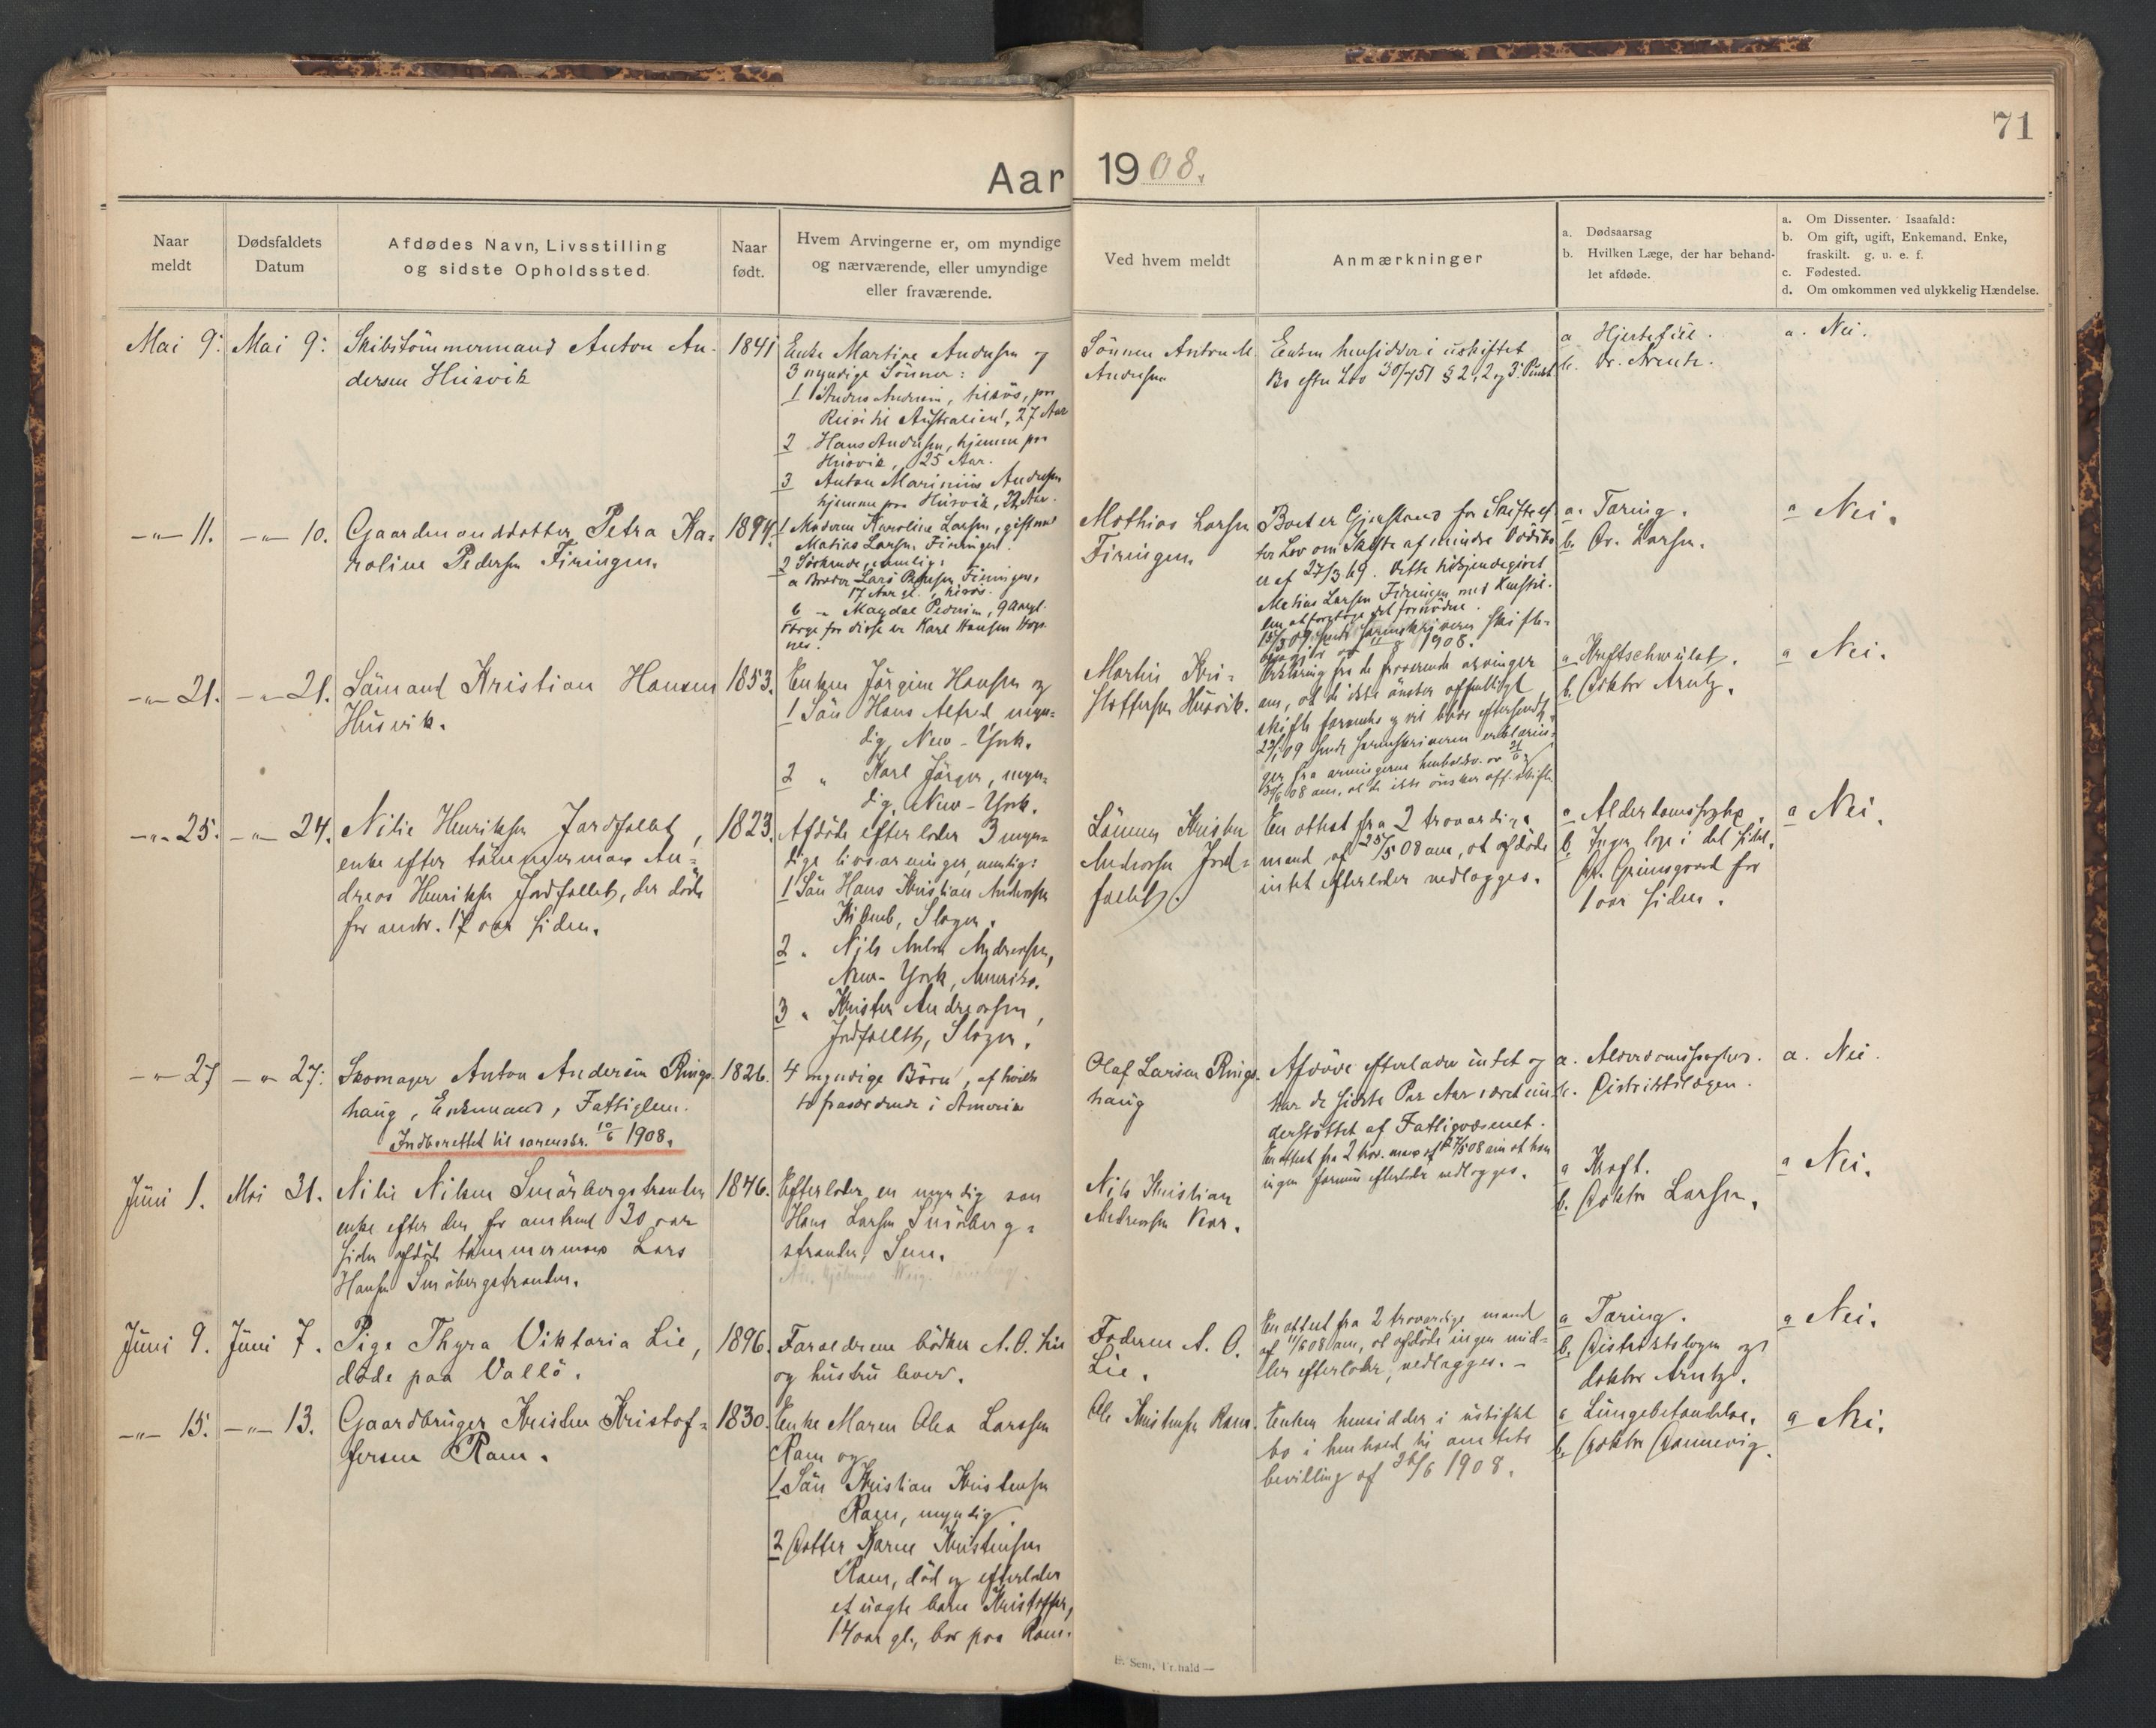 71
Aar 1908.
Naar meldt
Dødsfaldets Datum
Afdødes Navn, Livsstilling og sidste Opholdssted.
Naar født.
Hvem Arvingerne er, om myndige og nærværende, eller umyndige eller fraværende.
Ved hvem meldt
Anmærkninger
a. Dødsaarsag
b. Hvilken Læge, der har behandlet afdøde.
a. Om Dissenter. Isaafald:
b. Om gift, ugift, Enkemand, Enke, fraskilt. g. u. e. f.
c. Fødested.
d. Om omkommen ved ulykkelig Hændelse.
Mai 9. Mai 9.
Skibstömmermand Anton An-
dersen Husvik
1841
Enke Martine Andersen og
3 myndige Sönner:
1 Anders Andersen, tilsös, paa
Reise til Australien, 27 Aar
2 Hans Andersen, hjemme paa
Husvik, 25 Aar.
3 Anton Marinius Andersen
hjemme paa Husvik, 22 Aar.
Sönnen Anton M.
Andersen
Enken hensidder i uskiftet
Bo efter Lov 30/7 51 § 2, 2 og 3 Punkt
a Hjertefeil.
b. Dr. Arentz.
a. Nei.
-"- 11. -"- 10.
Gaardmandsdatter Petra Ka-
roline Pedersen Firingen.
1894.
1 Moderen Karoline Larsen, gift med
Matias Larsen Firingen.
2 Söskende, nemlig:
a Broder Lars Pedersen Firingen,
17 Aar gl., tilsös.
b -"- Magdal Pedersen, 9 Aar gl.
Værge for disse er Karl Hansen
Mathias Larsen
Firingen.
Boet er Gjenstand for Skifte ef-
ter Lov om Skifte af mindre Dödsbo
er af 27/3 69. Dette tilkjendegivet
Matias Larsen Firingen med
1908.
a. Tæring.
b. Dr. Larsen.
a Nei.
-"- 21. -"- 21.
Sömand Kristian Hansen
Husvik.
1853.
Enken Jörgine Hansen og
1 Sön Hans Alfred, myn-
dig, New-York.
2 " Karl Jörgen, myn-
dig, New-York.
Martin Kri-
stoffersen Husvik.
Erklæring fra de fraværende arvinger
om, at de ikke önsker offentligt
skifte
a Kræftschwulst.
b. Doktor Arntz.
a Nei.
-"- 25. -"- 24.
Nilie Henriksen Jordfaldet,
enke efter tömmermand An-
dreas Henriksen Jordfaldet, der döde
for omtr. 17 aar siden.
1823.
Afdöde efterlader 3 myn-
dige livsarvinger, nemlig:
1 Sön Hans Kristian Andreassen
Kilbæk, Slagen.
2 " Nils Anton Andreassen,
New-York, Amerika.
3 " Krister Andreassen,
Jordfaldet, Slagen.
Sönnen Krister
Andreassen Jord-
faldet.
En attest fra 2 troværdige
mænd af 25/5 08 om, at afdöde
intet efterlader vedlægges.
a Alderdomssvaghed.
b. Ingen læge i det sidste.
Dr. Grimsgaard for
1 aar siden.
a Nei.
-"- 27 -"- 27.
Skomager Anton Andersen Rings-
haug, Enkemand, Fattiglem.
Indberettet til sorenskr. 10/6 1908.
1826.
4 myndige Börn, af hvilke
to fraværende i Amerika
Olaf Larsen Rings-
haug
Afdöde efterlader intet og
har de sidste Par Aar været un-
derstöttet af Fattigvæsenet.
En attest fra 2 trov. mænd af 27/5 08 om at han
ingen formue efterlader vedlægges.
a. Alderdomssvaghed.
b. Distriktslægen.
a. Nei.
Juni 1. Mai 31.
Nilie Nilsen Smörbergstranden
enke efter den for omtrent 30 aar
siden afdöde tömmermand Lars
Hansen Smörbergstranden.
1846.
Efterlader en myndig sön
Hans Larsen Smörberg-
stranden, Sem.
Nils Kristian
Andreassen Vear.
a Kræft.
b. Doktor Larsen.
a Nei.
Juni 9. Juni 7.
Pige Thyra Viktoria Lie,
döde paa Vallö.
1896.
Forældrene bödker A. O. Lie
og hustru lever.
Faderen A. O.
Lie.
En attest fra 2 troværdige mænd
af 11/6 08 om, at afdöde ingen mid-
ler efterlader, vedlægges. -
a Tæring.
b. Distriktslægen og
doktor Arntz.
a Nei.
-"- 15. -"- 13.
Gaardbruger Kristen Kristof-
fersen Ram.
1830.
Enke Maren Olea Larssen
Ram og
1 Sön Kristian Kristensen
Ram, myndig.
2 Datter Karne Kristensen
Ram, död og efterlader
et uægte barn Kristoffer,
14 aar gl., bor paa Ram.
Ole Kristensen Ram.
Enken hensidder i uskiftet
bo i henhold til amtets
bevilling af 26/6 1908.
a Lungebetændelse.
b. Doktor Dannevig.
a Nei.
E. Sem, Fr.hald —